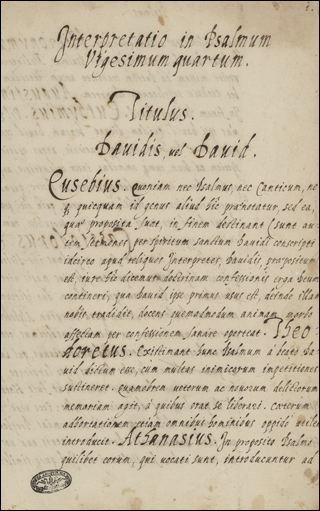 1.
Interpretatio in Psalmum
Vigesimum quartum.
Titulus.
Dauidis, uel Dauid.
Eusebius. Quoniam nec Psalmus, nec Canticum, ne
q; quicquam id genus aliud hic prænotatur, sed ea,
quæ proposita sunt, in finem destinant (sunt au
tem sermones per spiritum sanctum Dauidi conscripti
idcirco apud reliquos Interpretes, Dauidis, præpositum
est, iure hic dicemus doctrinam confessionis erga Deum
contineri, qua Dauid ipse primus usus est, deinde illam
nobis tradidit, docens quemadmodum animam morbo
affectam per confessionem sanare oporteat. Theo
doretus. Existimant hunc Psalmum à beato Da
uid dictum esse, cum multas inimicorum impetitiones
sustineret. quamobrem ueterum ac nouorum delictorum
memoriam agit, à quibus orat se liberari. cæterum
adhortationem etiam omnibus hominibus oppidò utilem
introducit. Athanasius. In proposito Psalmo
quilibet eorum, qui uocati sunt, introducuntur ad